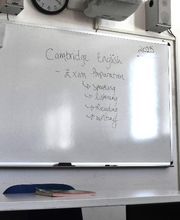 Cambridge English
- Exam Preparation
↳ Speaking
↳ Listening
↳ Reading
↳ Writing